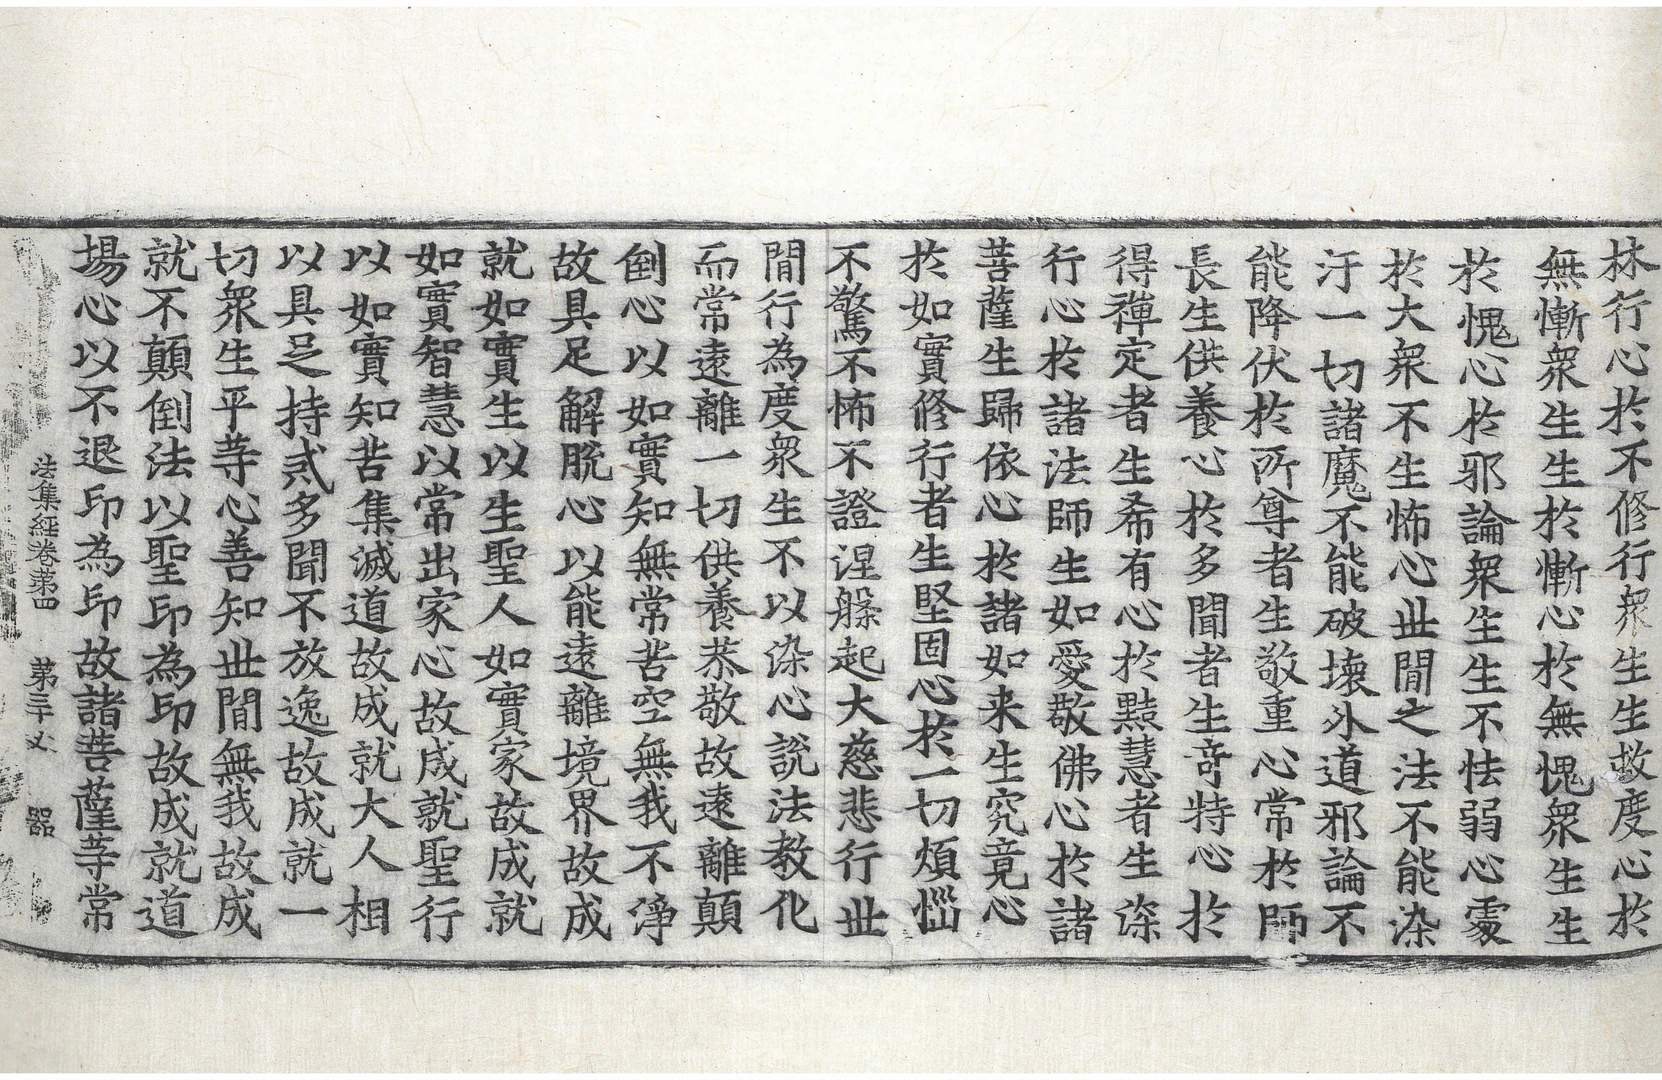 林行心於不修行衆生生救度心於
無慚衆生生於慚心於無愧衆生生
於愧心於邪論衆生生不怯弱心處
於大衆不生怖心世間之法不能染
汙一切諸魔不能破壞外道邪論不
能降伏於所尊者生敬重心常於師
長生供養心於多聞者生奇特心於
得禪定者生希有心於黠慧者生深
行心於諸法師生如愛敬佛心於諸
菩薩生歸依心於諸如来生究竟心
於如實修行者生堅固心於一切煩惱
不驚不怖不證涅槃起大慈悲行世
間行為度衆生不以染心說法教化
而常遠離一切供養恭敬故遠離顛
倒心以如實知無常苦空無我不淨
故具足解脫心以能遠離境界故成
就如實生以生聖人如實家故成就
如實智慧以常出家心故成就聖行
以如實知苦集滅道故成就大人相
以具足持貳多聞不放逸故成就一
切衆生平等心善知世間無我故成
就不顛倒法以聖印為印故成就道
場心以不退印為印故諸菩薩等常
法集經卷第四 第三十丈 器